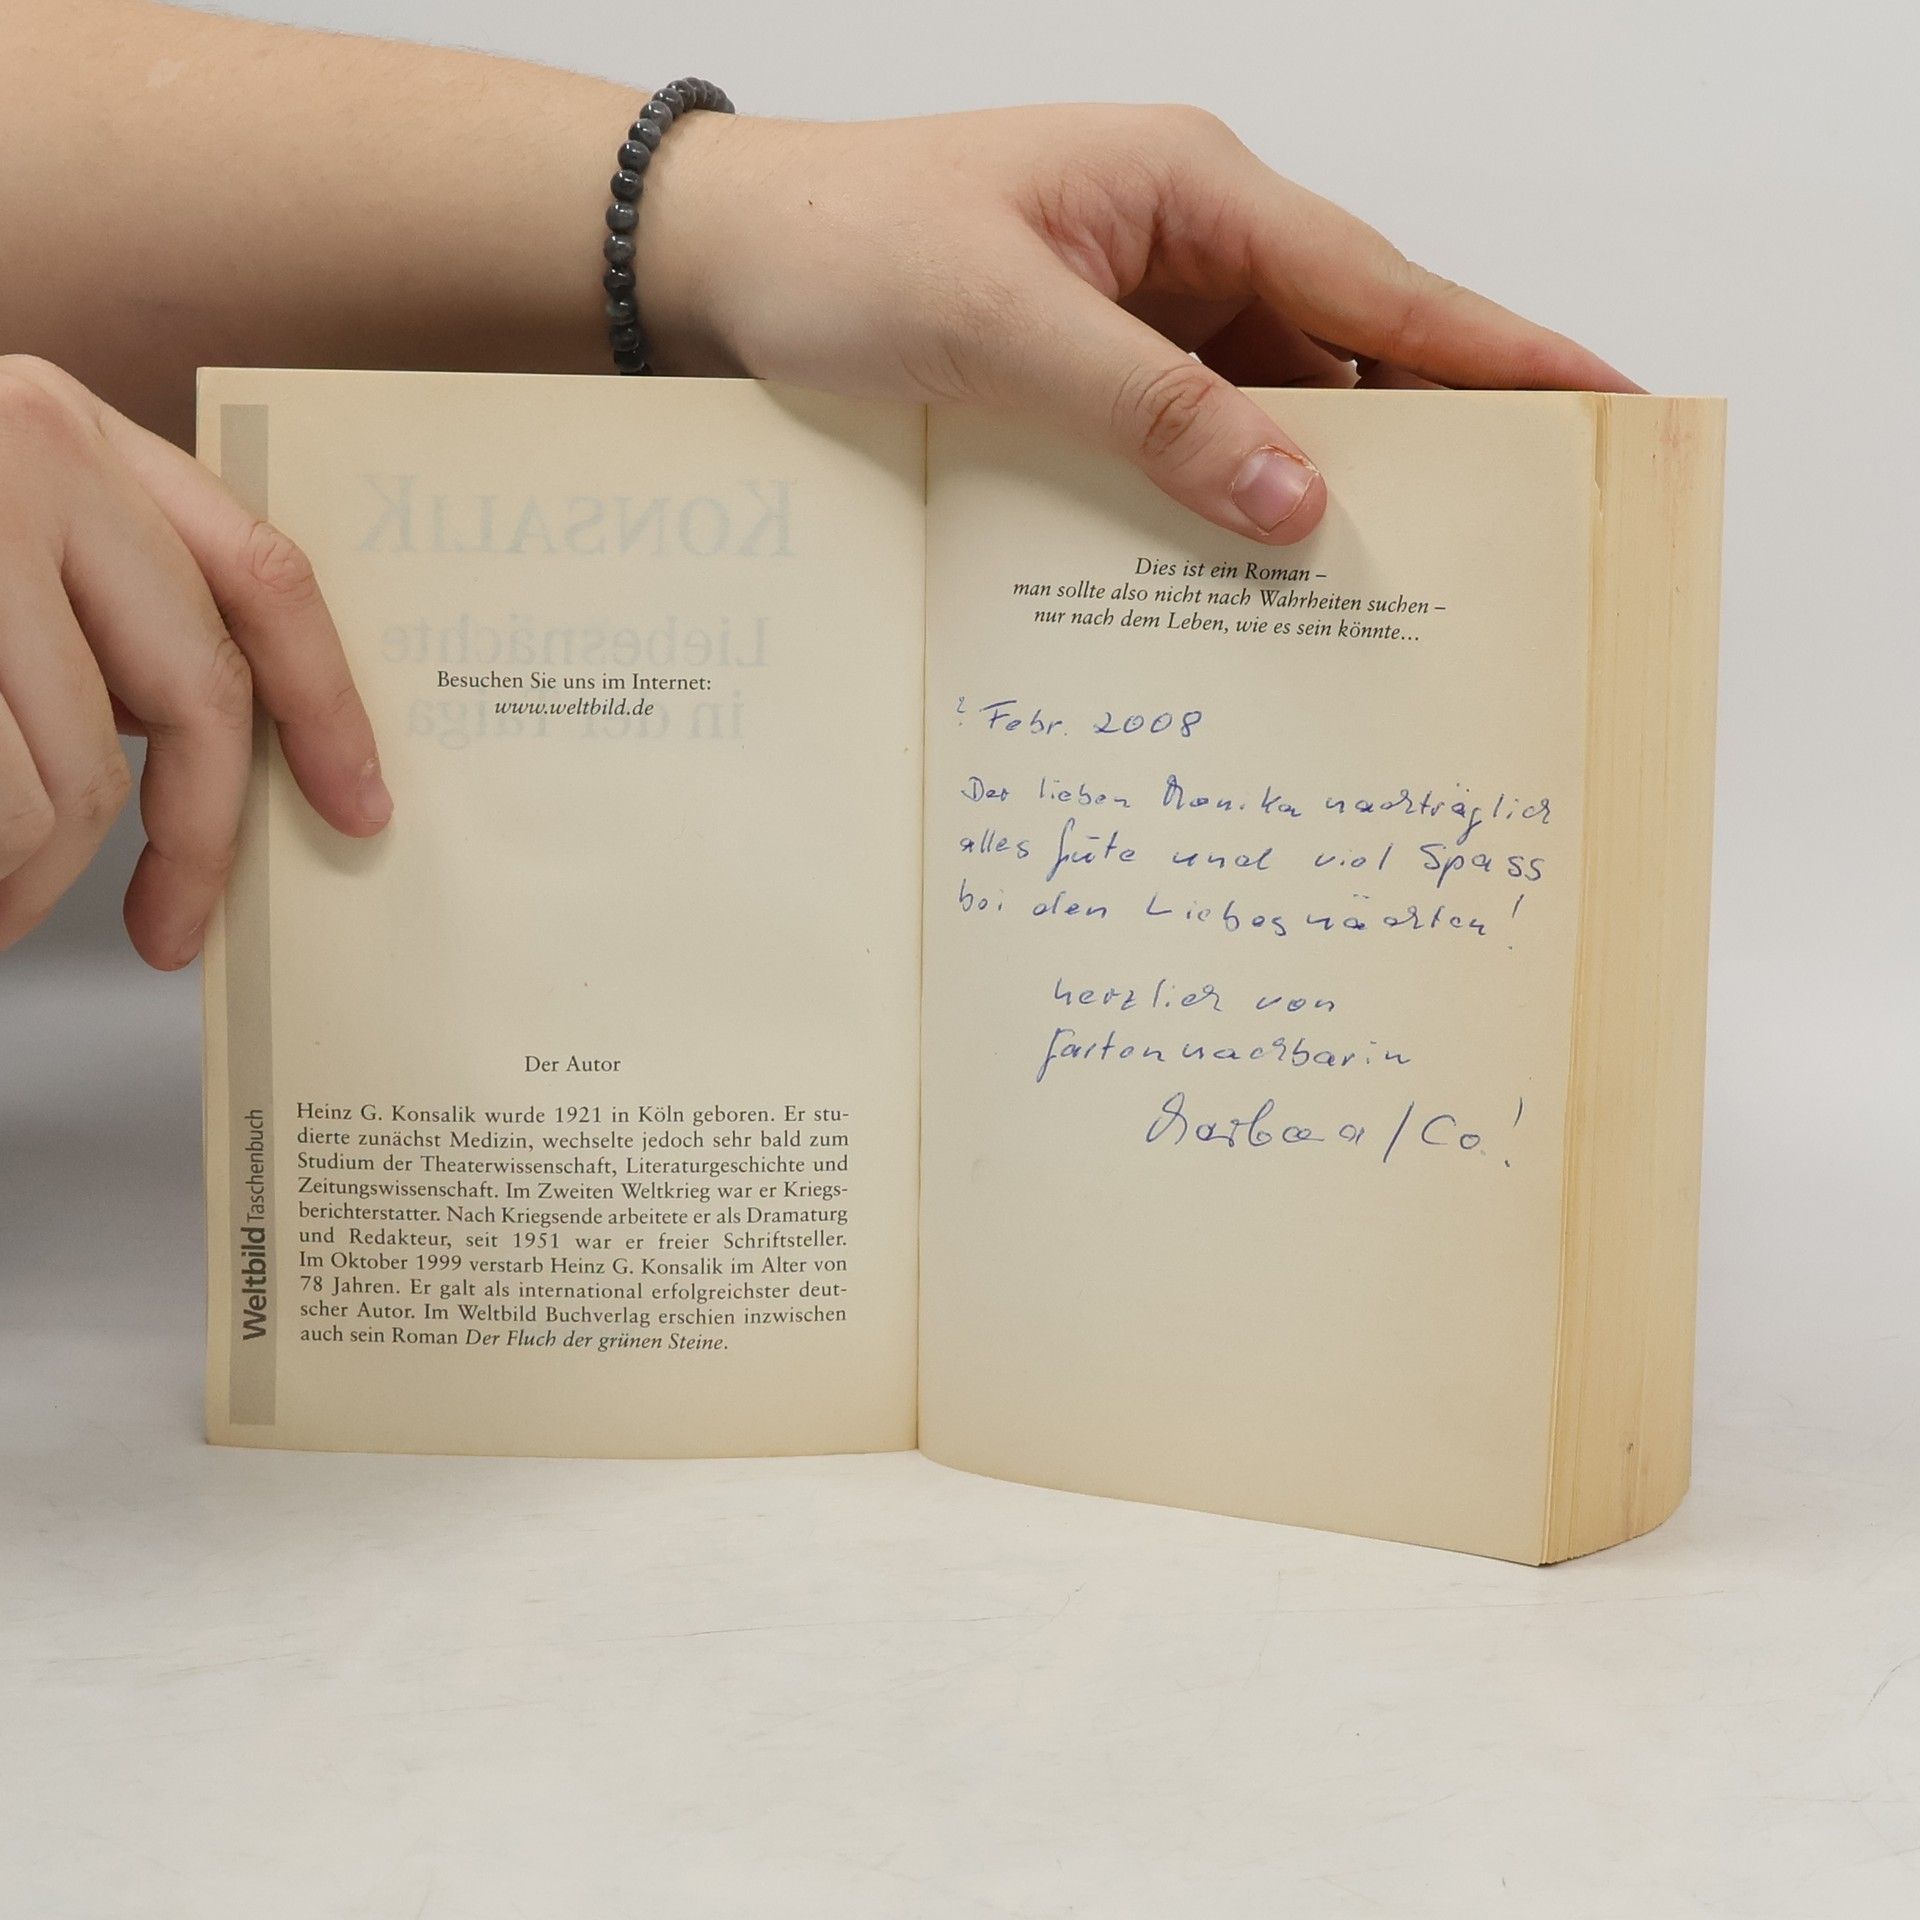 KONSALIK
Liebesnächte
in der Taiga
Besuchen Sie uns im Internet:
www.weltbild.de
Der Autor
Heinz G. Konsalik wurde 1921 in Köln geboren. Er stu-
dierte zunächst Medizin, wechselte jedoch sehr bald zum
Studium der Theaterwissenschaft, Literaturgeschichte und
Zeitungswissenschaft. Im Zweiten Weltkrieg war er Kriegs-
berichterstatter. Nach Kriegsende arbeitete er als Dramaturg
und Redakteur, seit 1951 war er freier Schriftsteller.
Im Oktober 1999 verstarb Heinz G. Konsalik im Alter von
78 Jahren. Er galt als international erfolgreichster deut-
scher Autor. Im Weltbild Buchverlag erschien inzwischen
auch sein Roman Der Fluch der grünen Steine.
Weltbild Taschenbuch
Dies ist ein Roman –
man sollte also nicht nach Wahrheiten suchen –
nur nach dem Leben, wie es sein könnte...
? Febr. 2008
Der lieben Monika nachträglich
alles Gute und viel Spass
bei den Liebesnächten!
herzlich von
Gartennachbarin
Barbara / Co.!